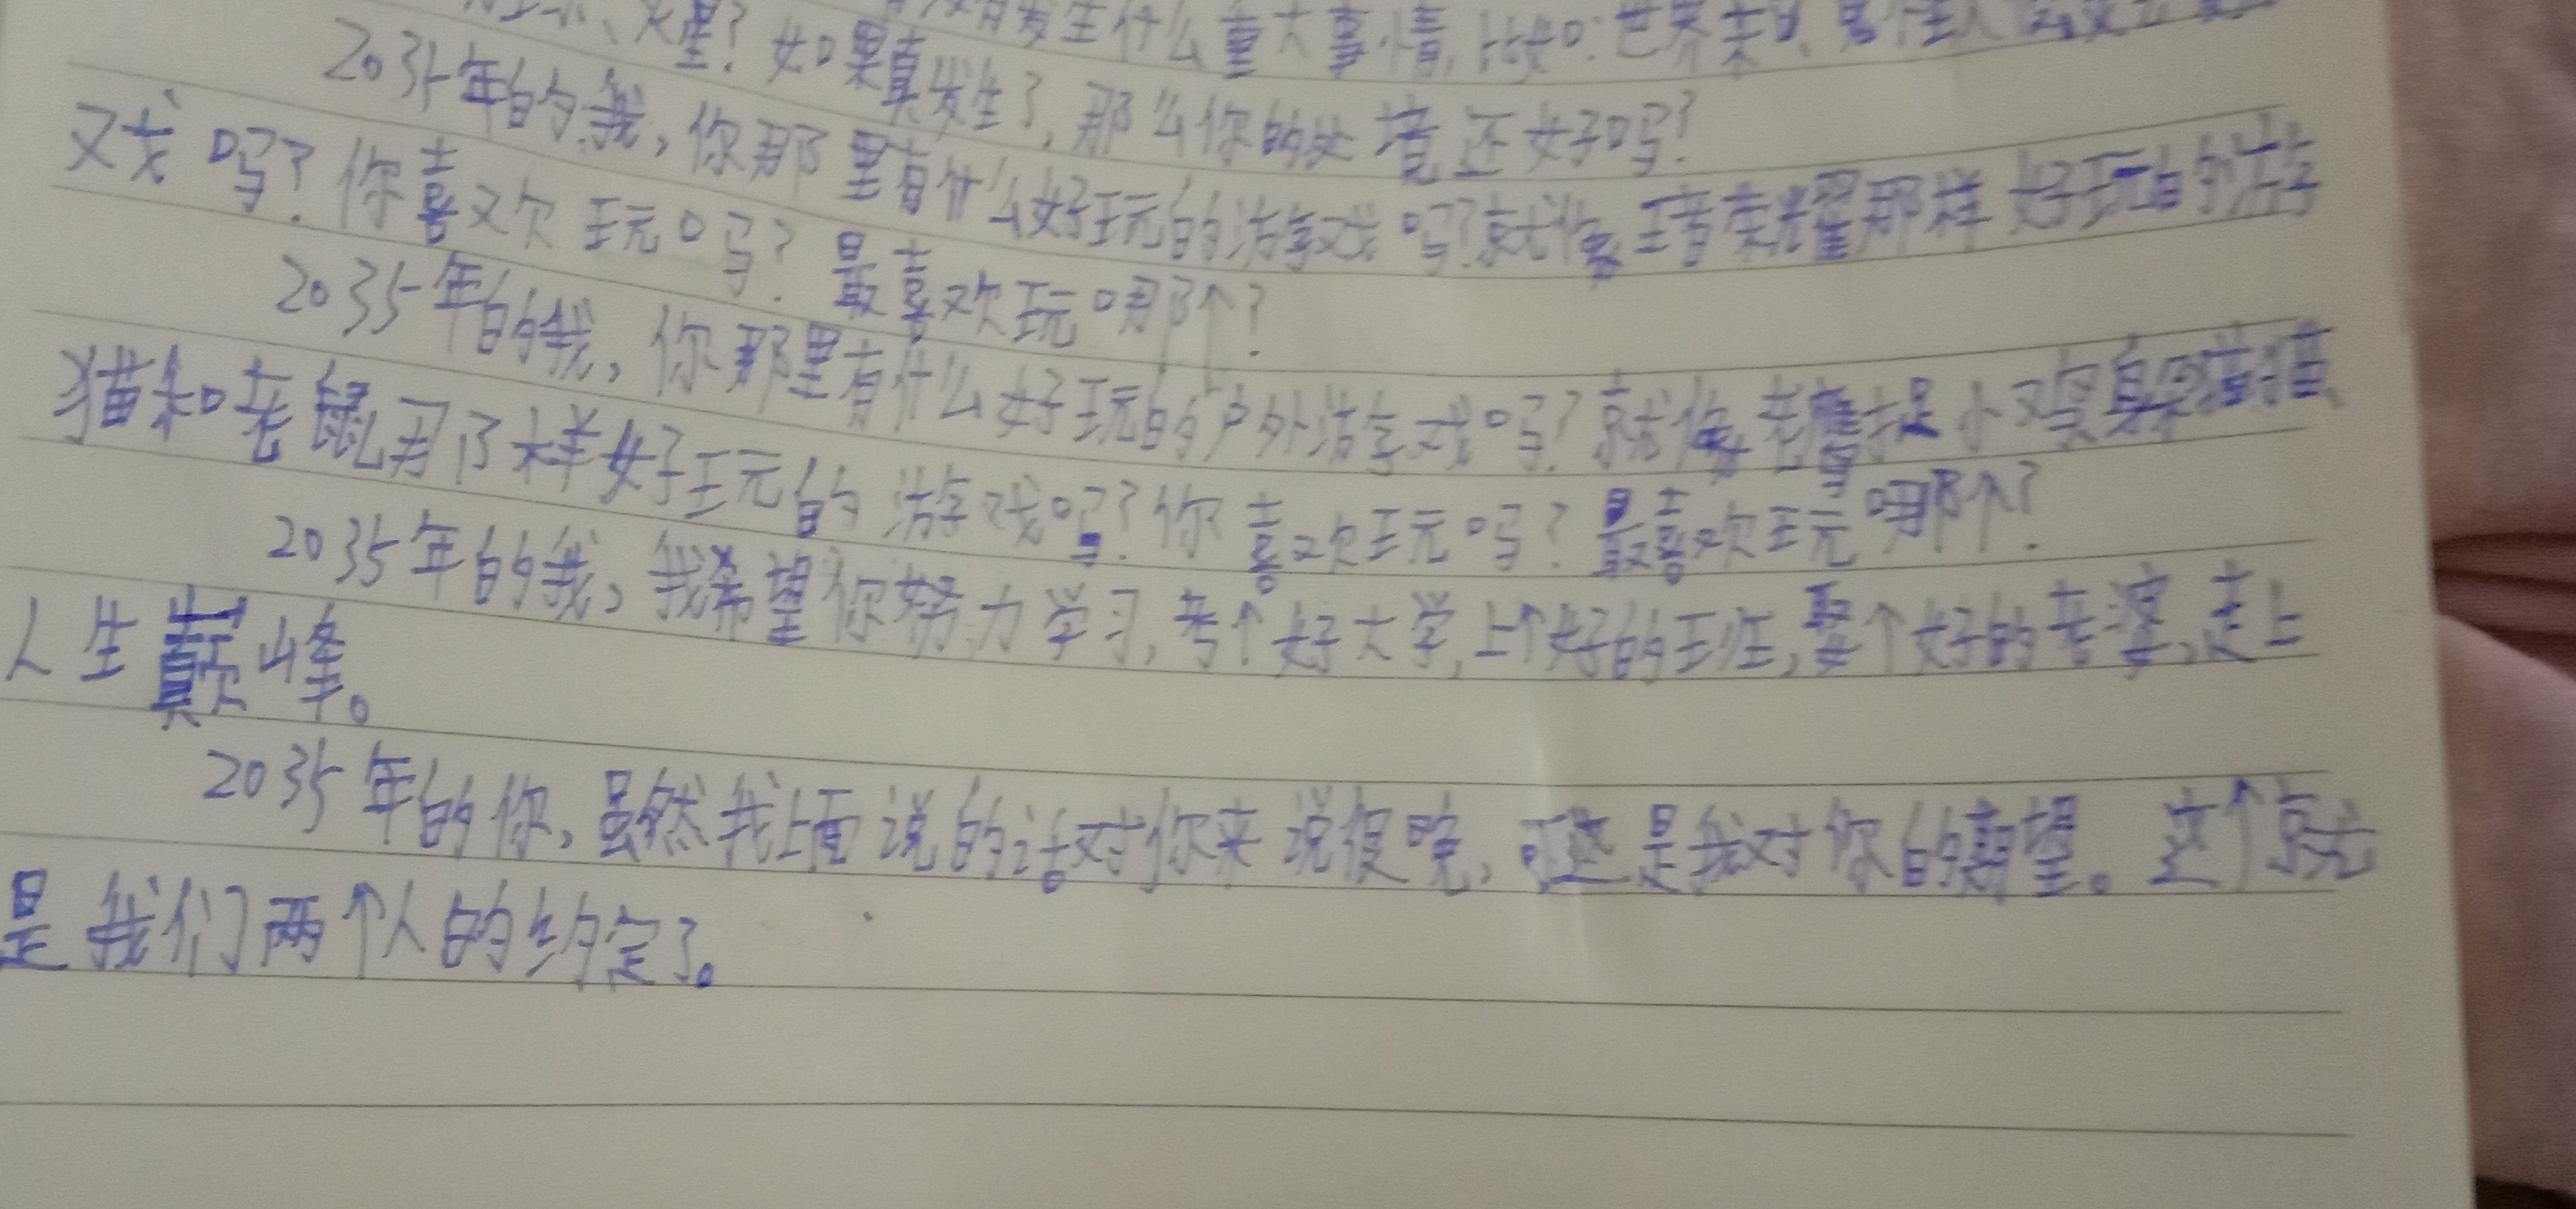 有没有发生什么重大事情,比如:世界末日、
火星?如果真发生了,那么你的处境还好吗?
2035年的我,你那里有什么好玩的游戏吗?就像王者荣耀那样好玩的游
戏吗?你喜欢玩吗?最喜欢玩哪个?
2035年的我,你那里有什么好玩的户外游戏吗?就像老鹰捉小鸡、躲猫猫、
猫和老鼠那样好玩的游戏吗?你喜欢玩吗?最喜欢玩哪个?
2035年的我,我希望你努力学习,考个好大学,上个好的班,娶个好的老婆,走上
人生巅峰。
2035年的你,虽然我上面说的话对你来说很晚,可这是我对你的期望。这个就
是我们两个人的约定了。